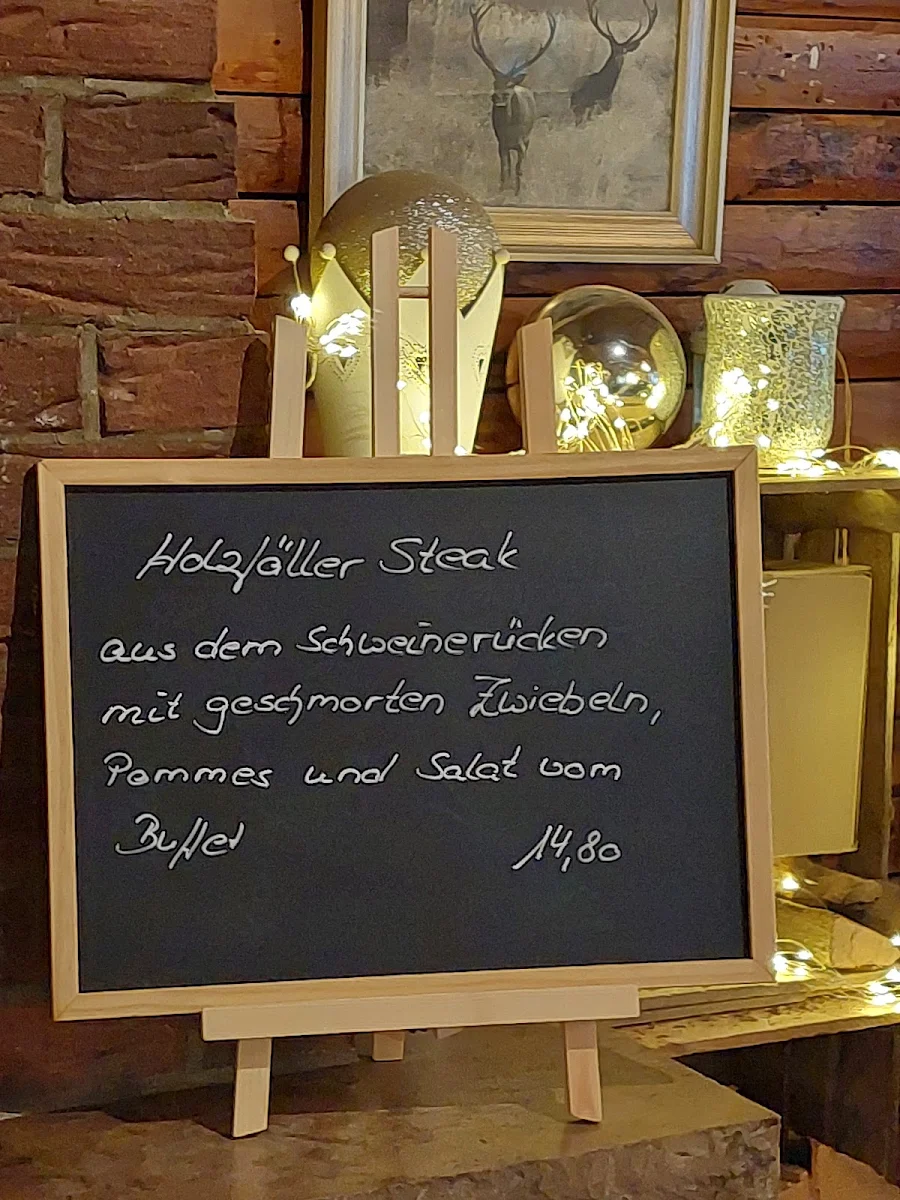 Holzfäller Steak
aus dem Schweinerücken
mit geschmorten Zwiebeln,
Pommes und Salat vom
Buffet 14,80